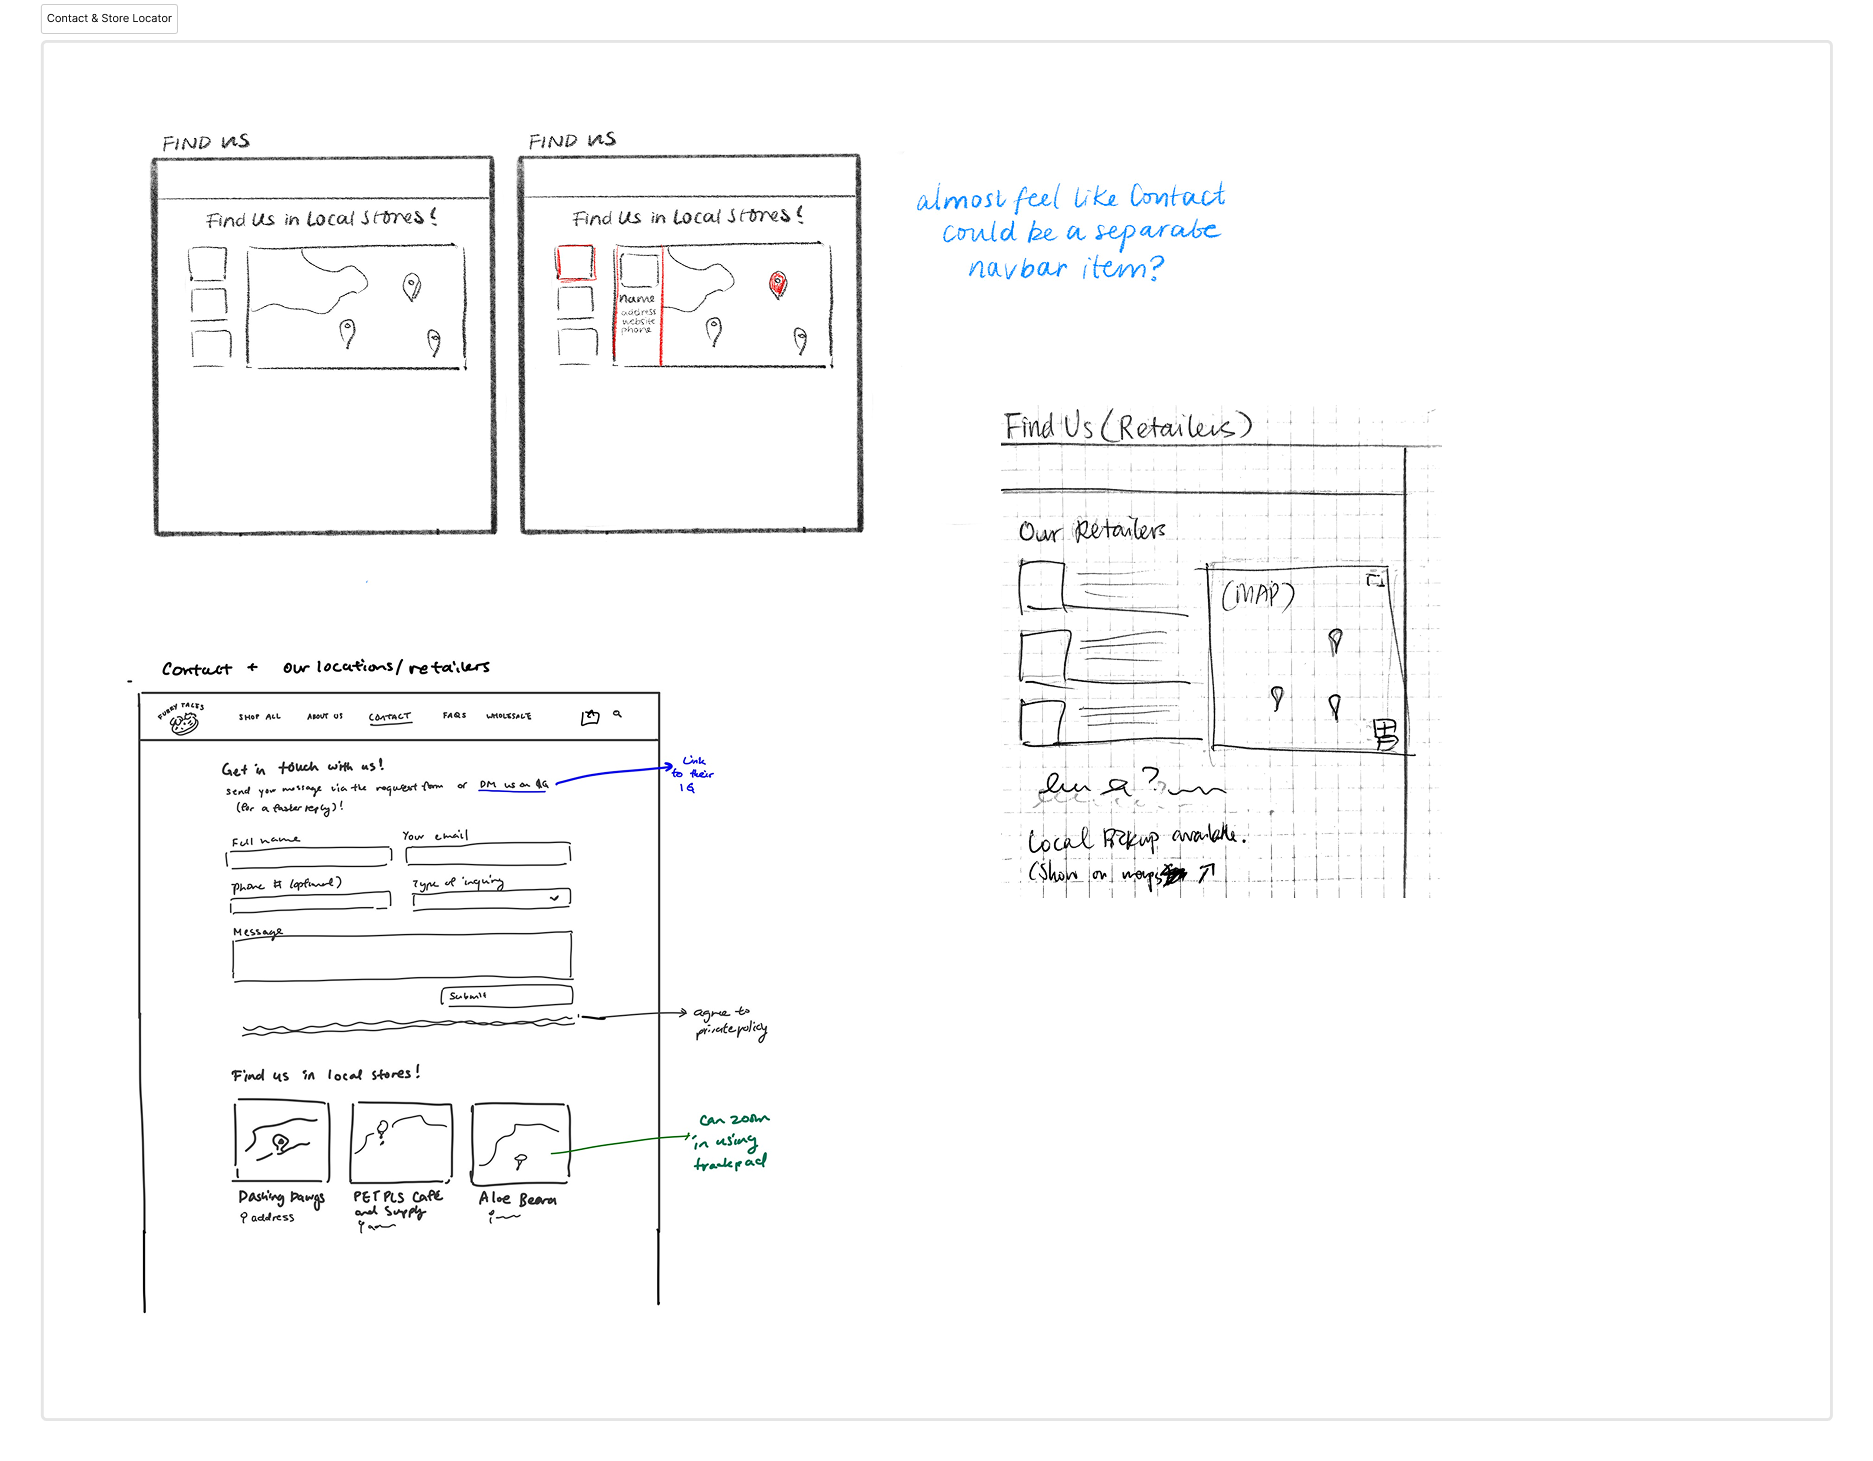 Contact & Store Locator
FIND US
Find Us in Local Stores!
FIND US
Find Us in Local Stores!
name
address
website
phone
almost feel like Contact
could be a separate
navbar item?
Find Us (Retailers)
Our Retailers
(MAP)
Local Pickup available.
(Show on maps
Contact + our locations/retailers
FURRY TALES
SHOP ALL
ABOUT US
CONTACT
FAQS
WHOLESALE
Get in touch with us!
send your message via the request form or DM us on IG
(for a faster reply)!
Link
to their
IG
Full name
Your email
phone # (optional)
Type of inquiry
Message
Submit
agree to
private policy
Find us in local stores!
can zoom
in using
trackpad
Dashing Dawgs
address
PET PLS CAFE
and Supply
Aloe Bearn